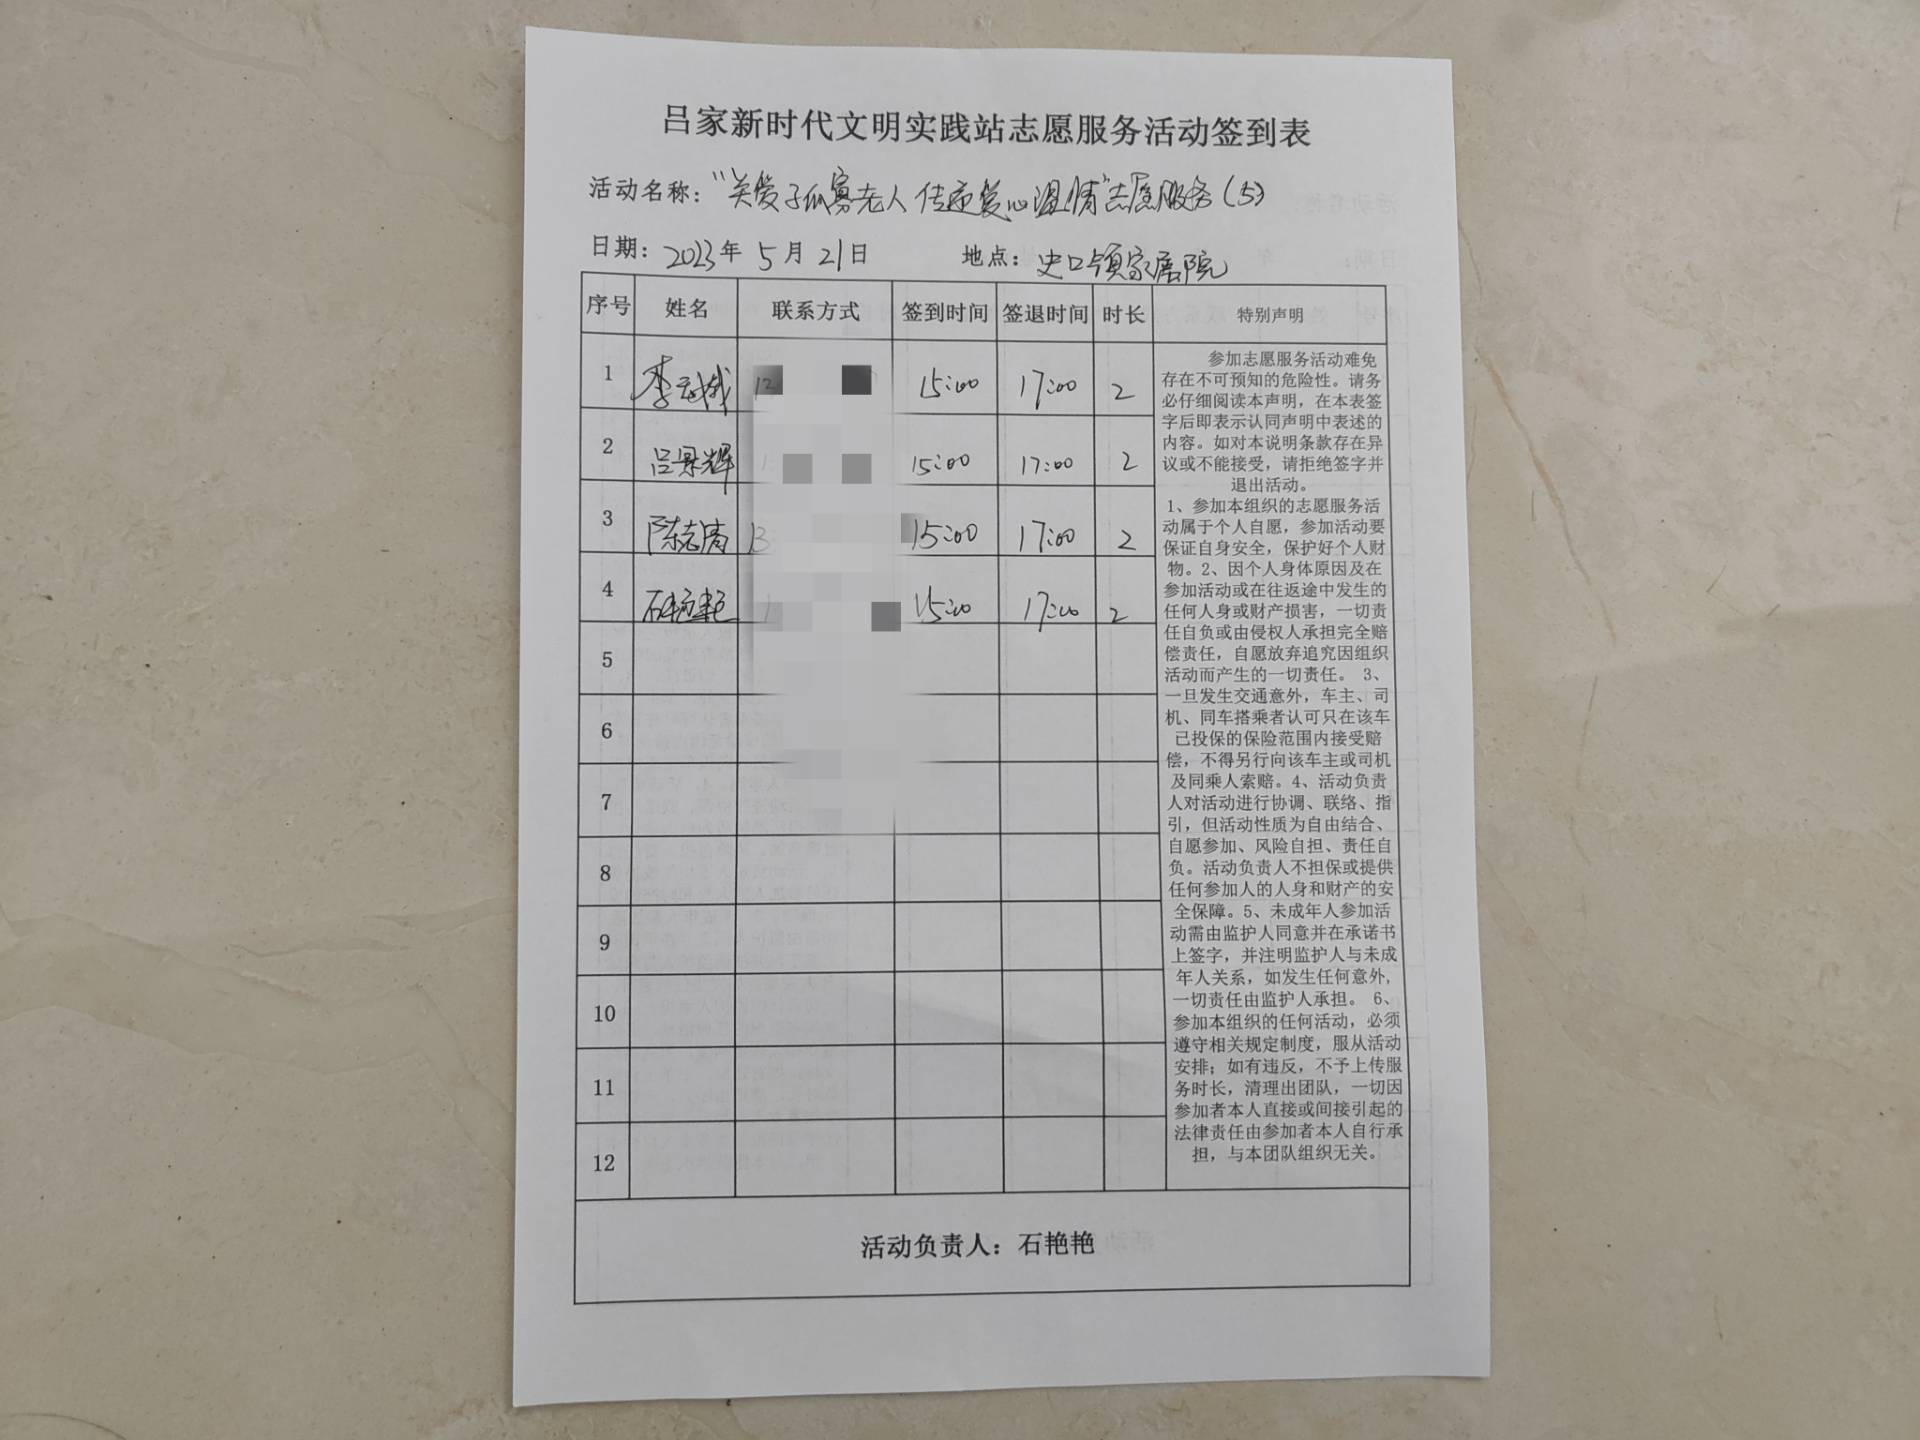 吕家新时代文明实践站志愿服务活动签到表
活动名称：“关爱孤寡老人传递爱心温情”志愿服务（5）
日期：2023年 5 月 21日 地点：史口镇家居院
序号 姓名 联系方式 签到时间 签退时间 时长 特别声明
1 李 15:00 17:00 2
2 吕景辉 15:00 17:00 2
3 陈志清 13 15:00 17:00 2
4 石艳艳 15:00 17:00 2
5
6
7
8
9
10
11
12
参加志愿服务活动难免
存在不可预知的危险性。请务
必仔细阅读本声明，在本表签
字后即表示认同声明中表述的
内容。如对本说明条款存在异
议或不能接受，请拒绝签字并
退出活动。
1、参加本组织的志愿服务活
动属于个人自愿，参加活动要
保证自身安全，保护好个人财
物。2、因个人身体原因及在
参加活动或在往返途中发生的
任何人身或财产损害，一切责
任自负或由侵权人承担完全赔
偿责任，自愿放弃追究因组织
活动而产生的一切责任。 3、
一旦发生交通意外，车主、司
机、同车搭乘者认可只在该车
已投保的保险范围内接受赔
偿，不得另行向该车主或司机
及同乘人索赔。4、活动负责
人对活动进行协调、联络、指
引，但活动性质为自由结合、
自愿参加、风险自担、责任自
负。活动负责人不担保或提供
任何参加人的人身和财产的安
全保障。5、未成年人参加活
动需由监护人同意并在承诺书
上签字，并注明监护人与未成
年人关系，如发生任何意外，
一切责任由监护人承担。 6、
参加本组织的任何活动，必须
遵守相关规定制度，服从活动
安排；如有违反，不予上传服
务时长，清理出团队，一切因
参加者本人直接或间接引起的
法律责任由参加者本人自行承
担，与本团队组织无关。
活动负责人：石艳艳